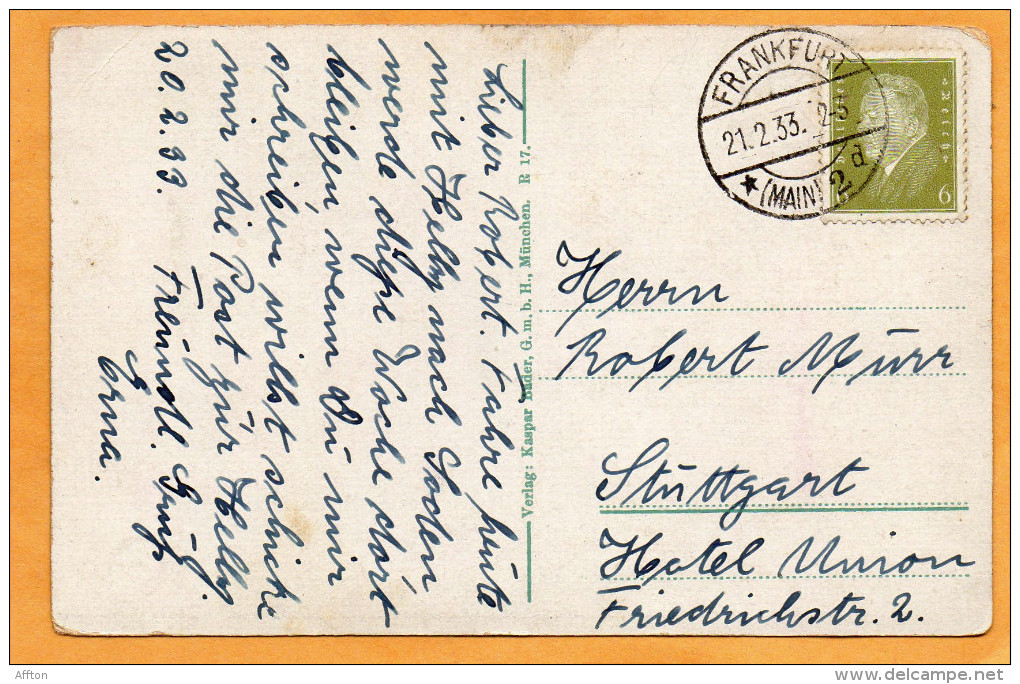 Lieber Robert. Fahre heute
mit Helly nach Soden
werde diese Woche dort
bleiben, wenn Du mir
schreiben willst schicke
mir die Post zur Helly
20.2.33. Freundl. Gruß
Erna.
Verlag: Kaspar Bader, G. m. b. H., München. R 17.
FRANKFURT
21.2.33.
* (MAIN) 2
d
6
Herrn
Robert Murr
Stuttgart
Hotel Union
Friedrichstr. 2.
Affton
www.delcampe.net